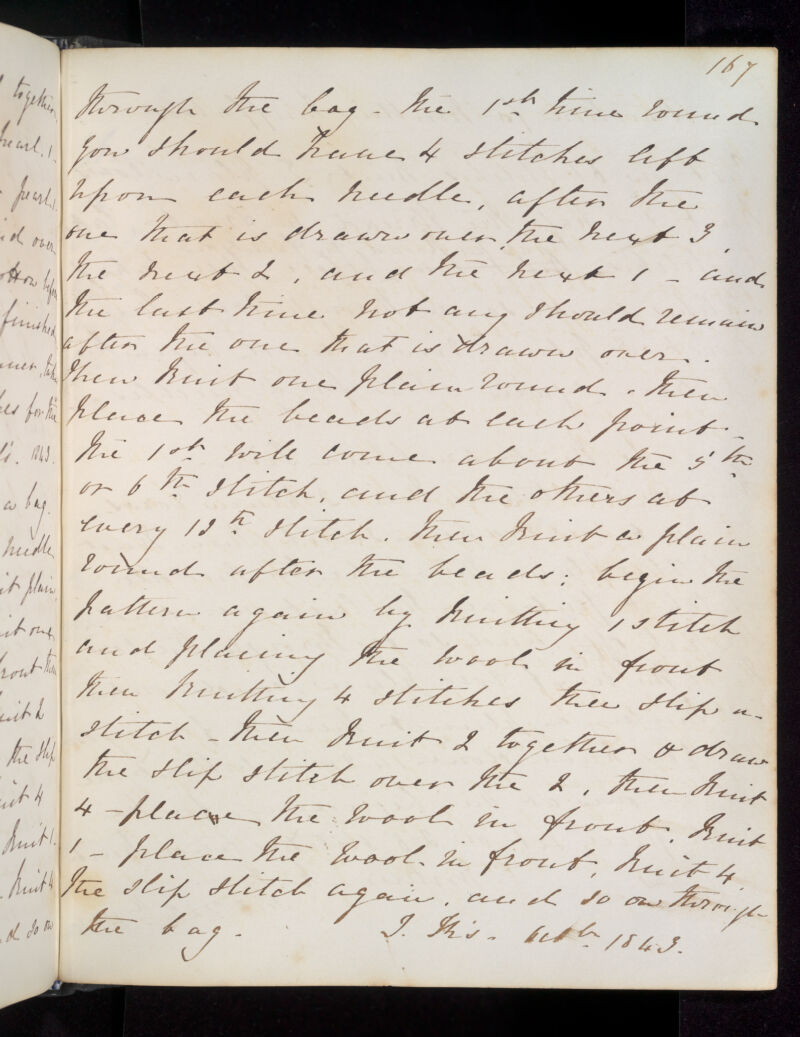 167
through the bag - the 1st time round
you should have 4 stitches left
upon each needle, after the
one that is drawn over, the next 3,
the next 2, and the next 1 - and
the last time not any should remain
after the one that is drawn over.
Then knit one plain round. then
place the beads at each point -
the 1st will come about the 5th
or 6th stitch, and the others at
every 12th stitch. then knit a plain
round after the beads: begin the
pattern again by knitting 1 stitch
and placing the wool in front
then knitting 4 stitches then slip a
stitch - then knit 2 together & draw
the slip stitch over the 2, then knit
4 - place the wool in front, knit
1 - place the wool in front, knit 4,
the slip stitch again, and so on through
the bag. 1843.
together
pearl. 1.
pearl. 1.
over
finished
for the
1843.
a bag.
needle
plain,
front then
knit 2
the slip
knit 4
knit 1.
knit 4
so on